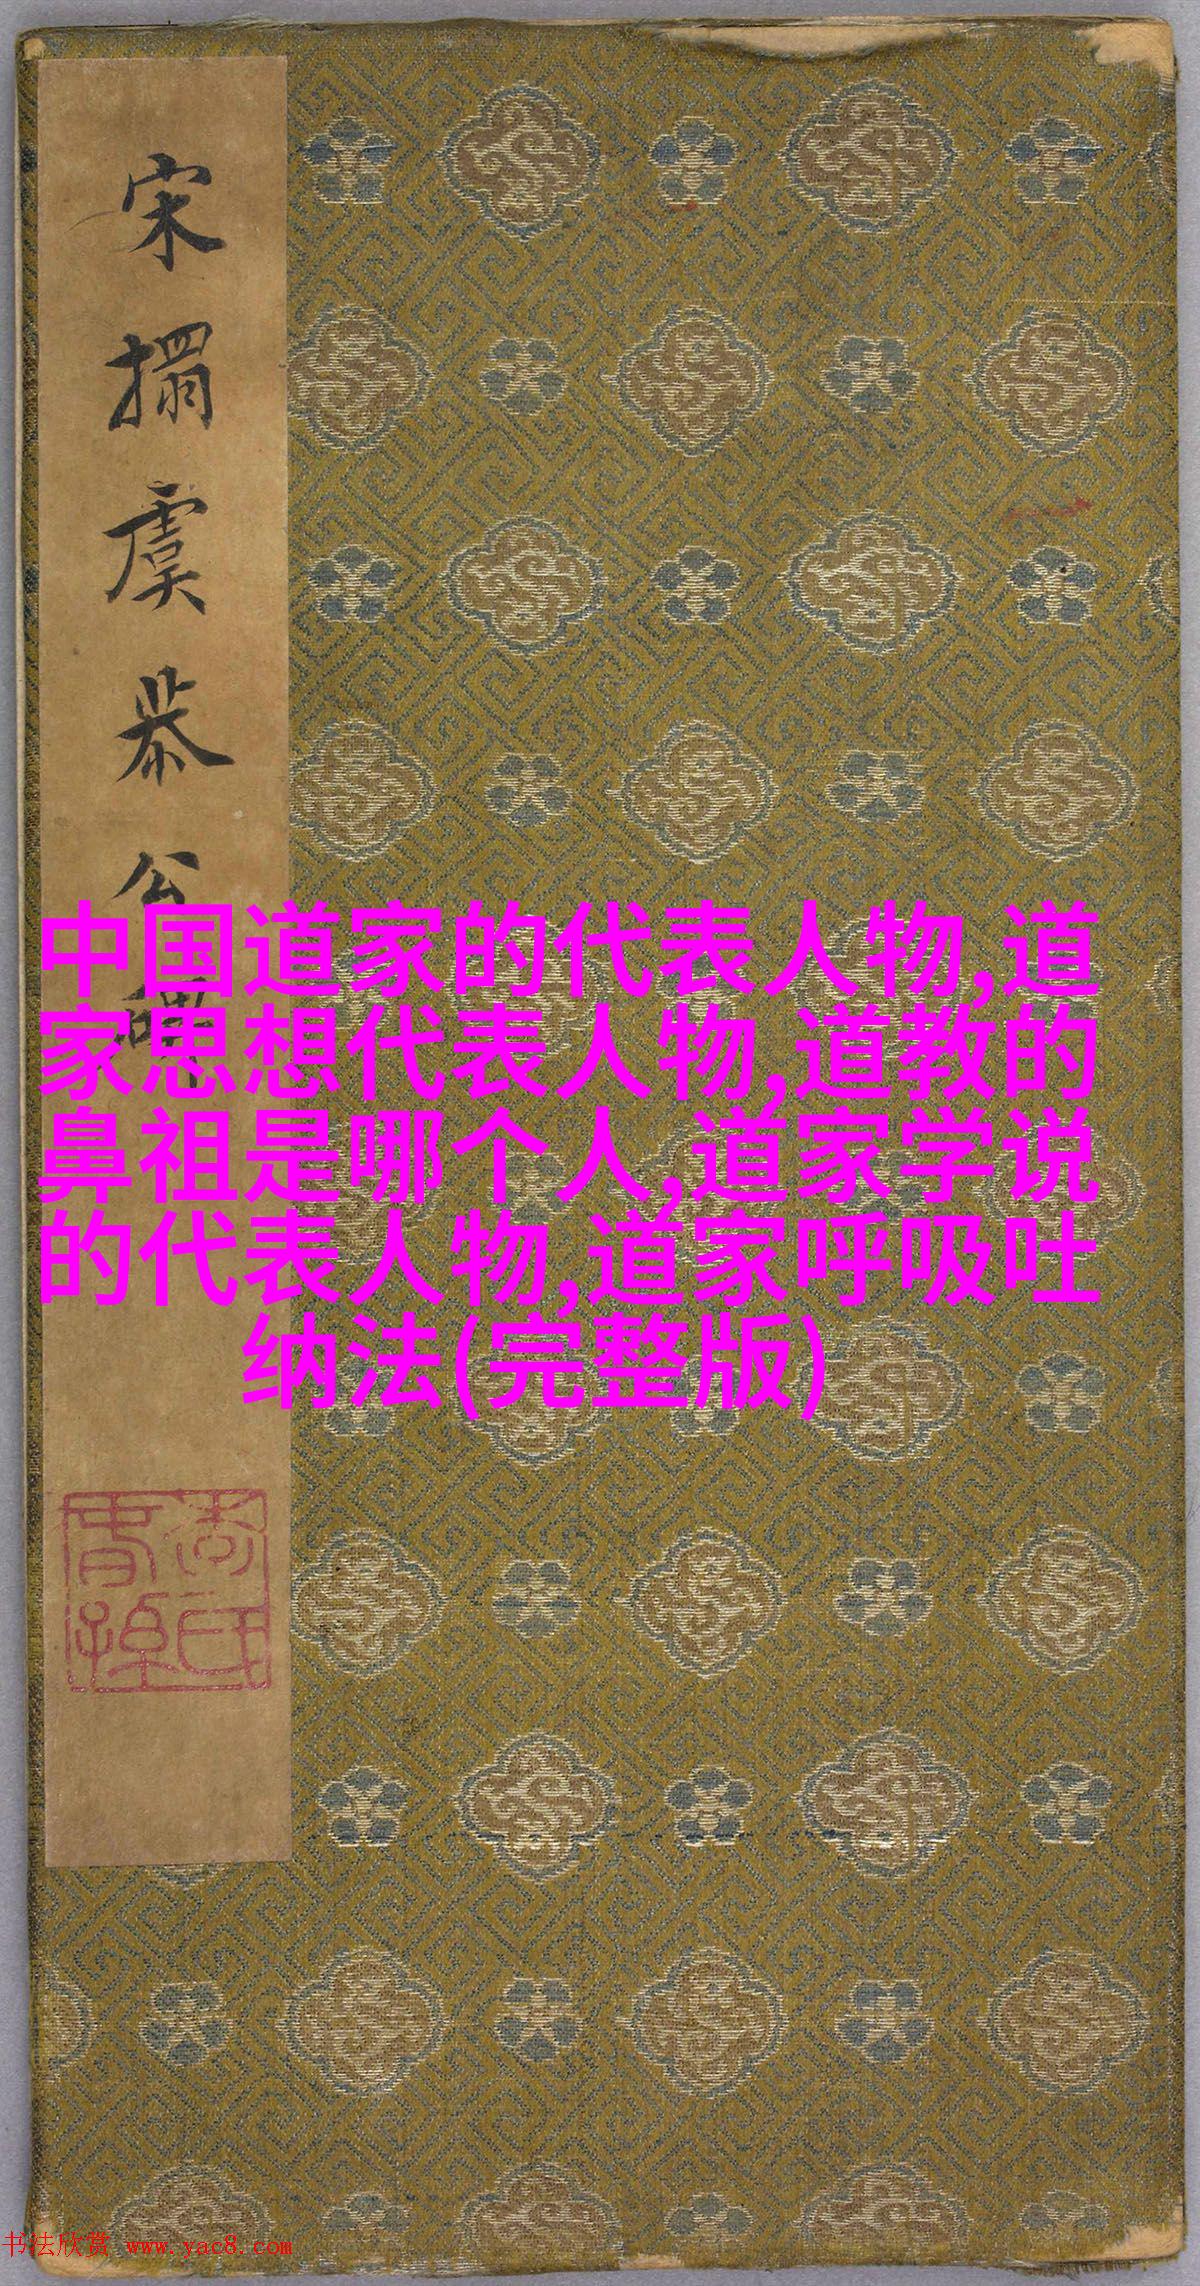 宋搨虞恭公碑
中国道家的代表人物,道
家思想代表人物,道教的
鼻祖是哪个人,道家学说
的代表人物,道家呼吸吐
纳法(完整版)
书法欣赏 www.yac8.com